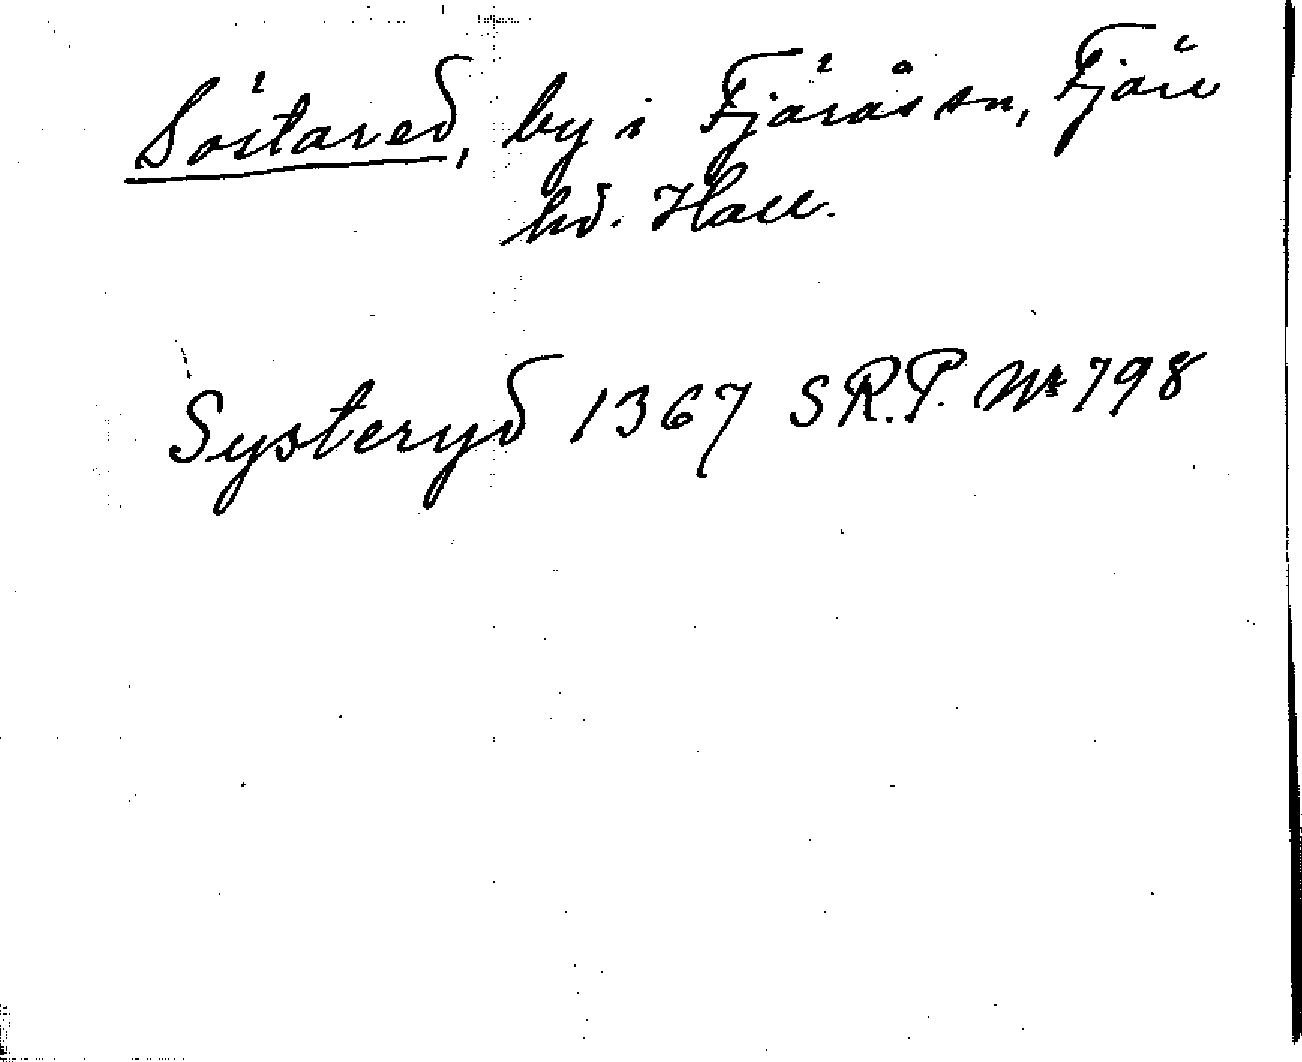 Söstared, by i Fjärås sn, Fjäre
hd. Hall.
Systeryd 1367 S.R.P. Nr 798